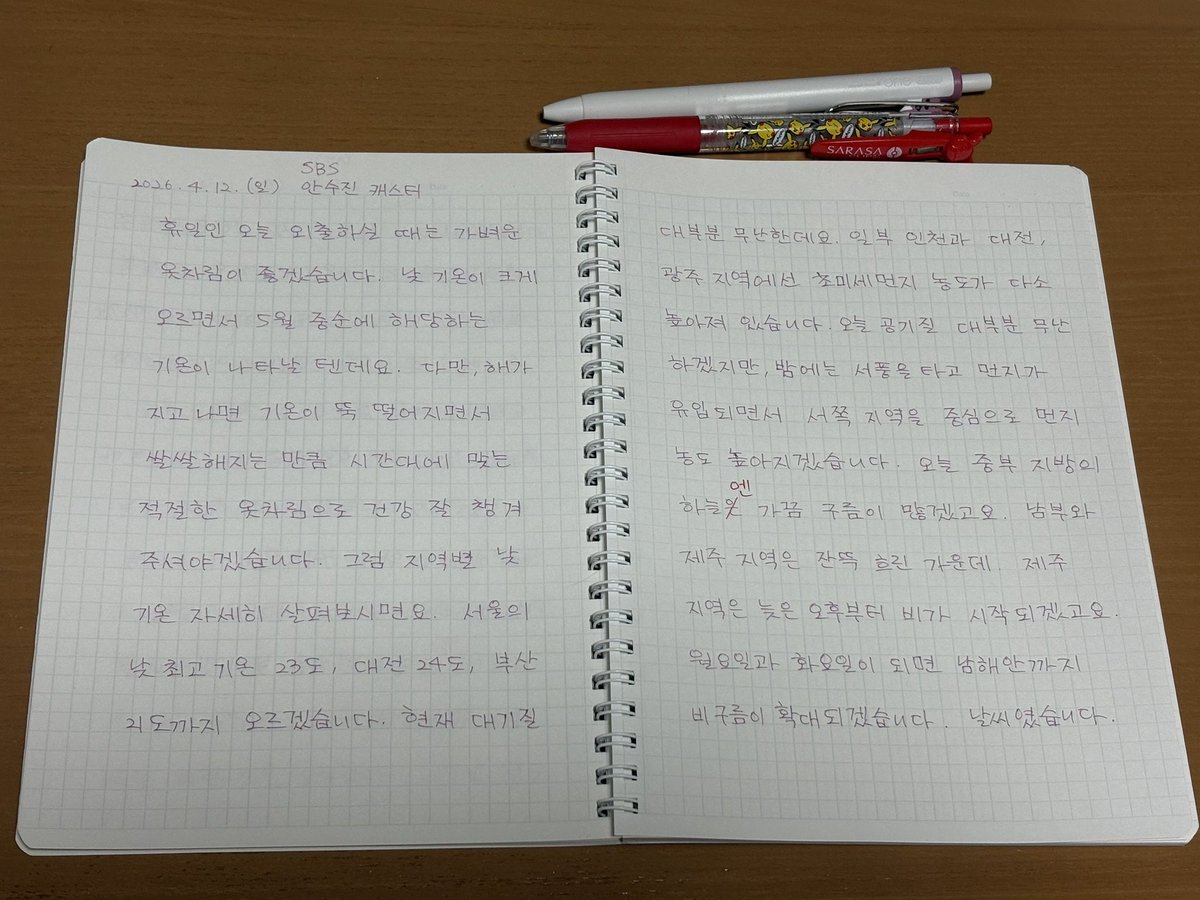 SBS
2026. 4. 12. (일) 안수진 캐스터
휴일인 오늘 외출하실 때는 가벼운
옷차림이 좋겠습니다. 낮 기온이 크게
오르면서 5월 중순에 해당하는
기온이 나타날 텐데요. 다만, 해가
지고 나면 기온이 뚝 떨어지면서
쌀쌀해지는 만큼 시간대에 맞는
적절한 옷차림으로 건강 잘 챙겨
주셔야겠습니다. 그럼 지역별 낮
기온 자세히 살펴보시면요. 서울의
낮 최고 기온 23도, 대전 24도, 부산
21도까지 오르겠습니다. 현재 대기질
대부분 무난한데요. 일부 인천과 대전,
광주 지역에선 초미세먼지 농도가 다소
높아져 있습니다. 오늘 공기질 대부분 무난
하겠지만, 밤에는 서풍을 타고 먼지가
유입되면서 서쪽 지역을 중심으로 먼지
농도 높아지겠습니다. 오늘 중부 지방의
하늘엔 가끔 구름이 많겠고요. 남부와
제주 지역은 잔뜩 흐린 가운데. 제주
지역은 늦은 오후부터 비가 시작되겠고요.
월요일과 화요일이 되면 남해안까지
비구름이 확대되겠습니다. 날씨였습니다.
SARASA